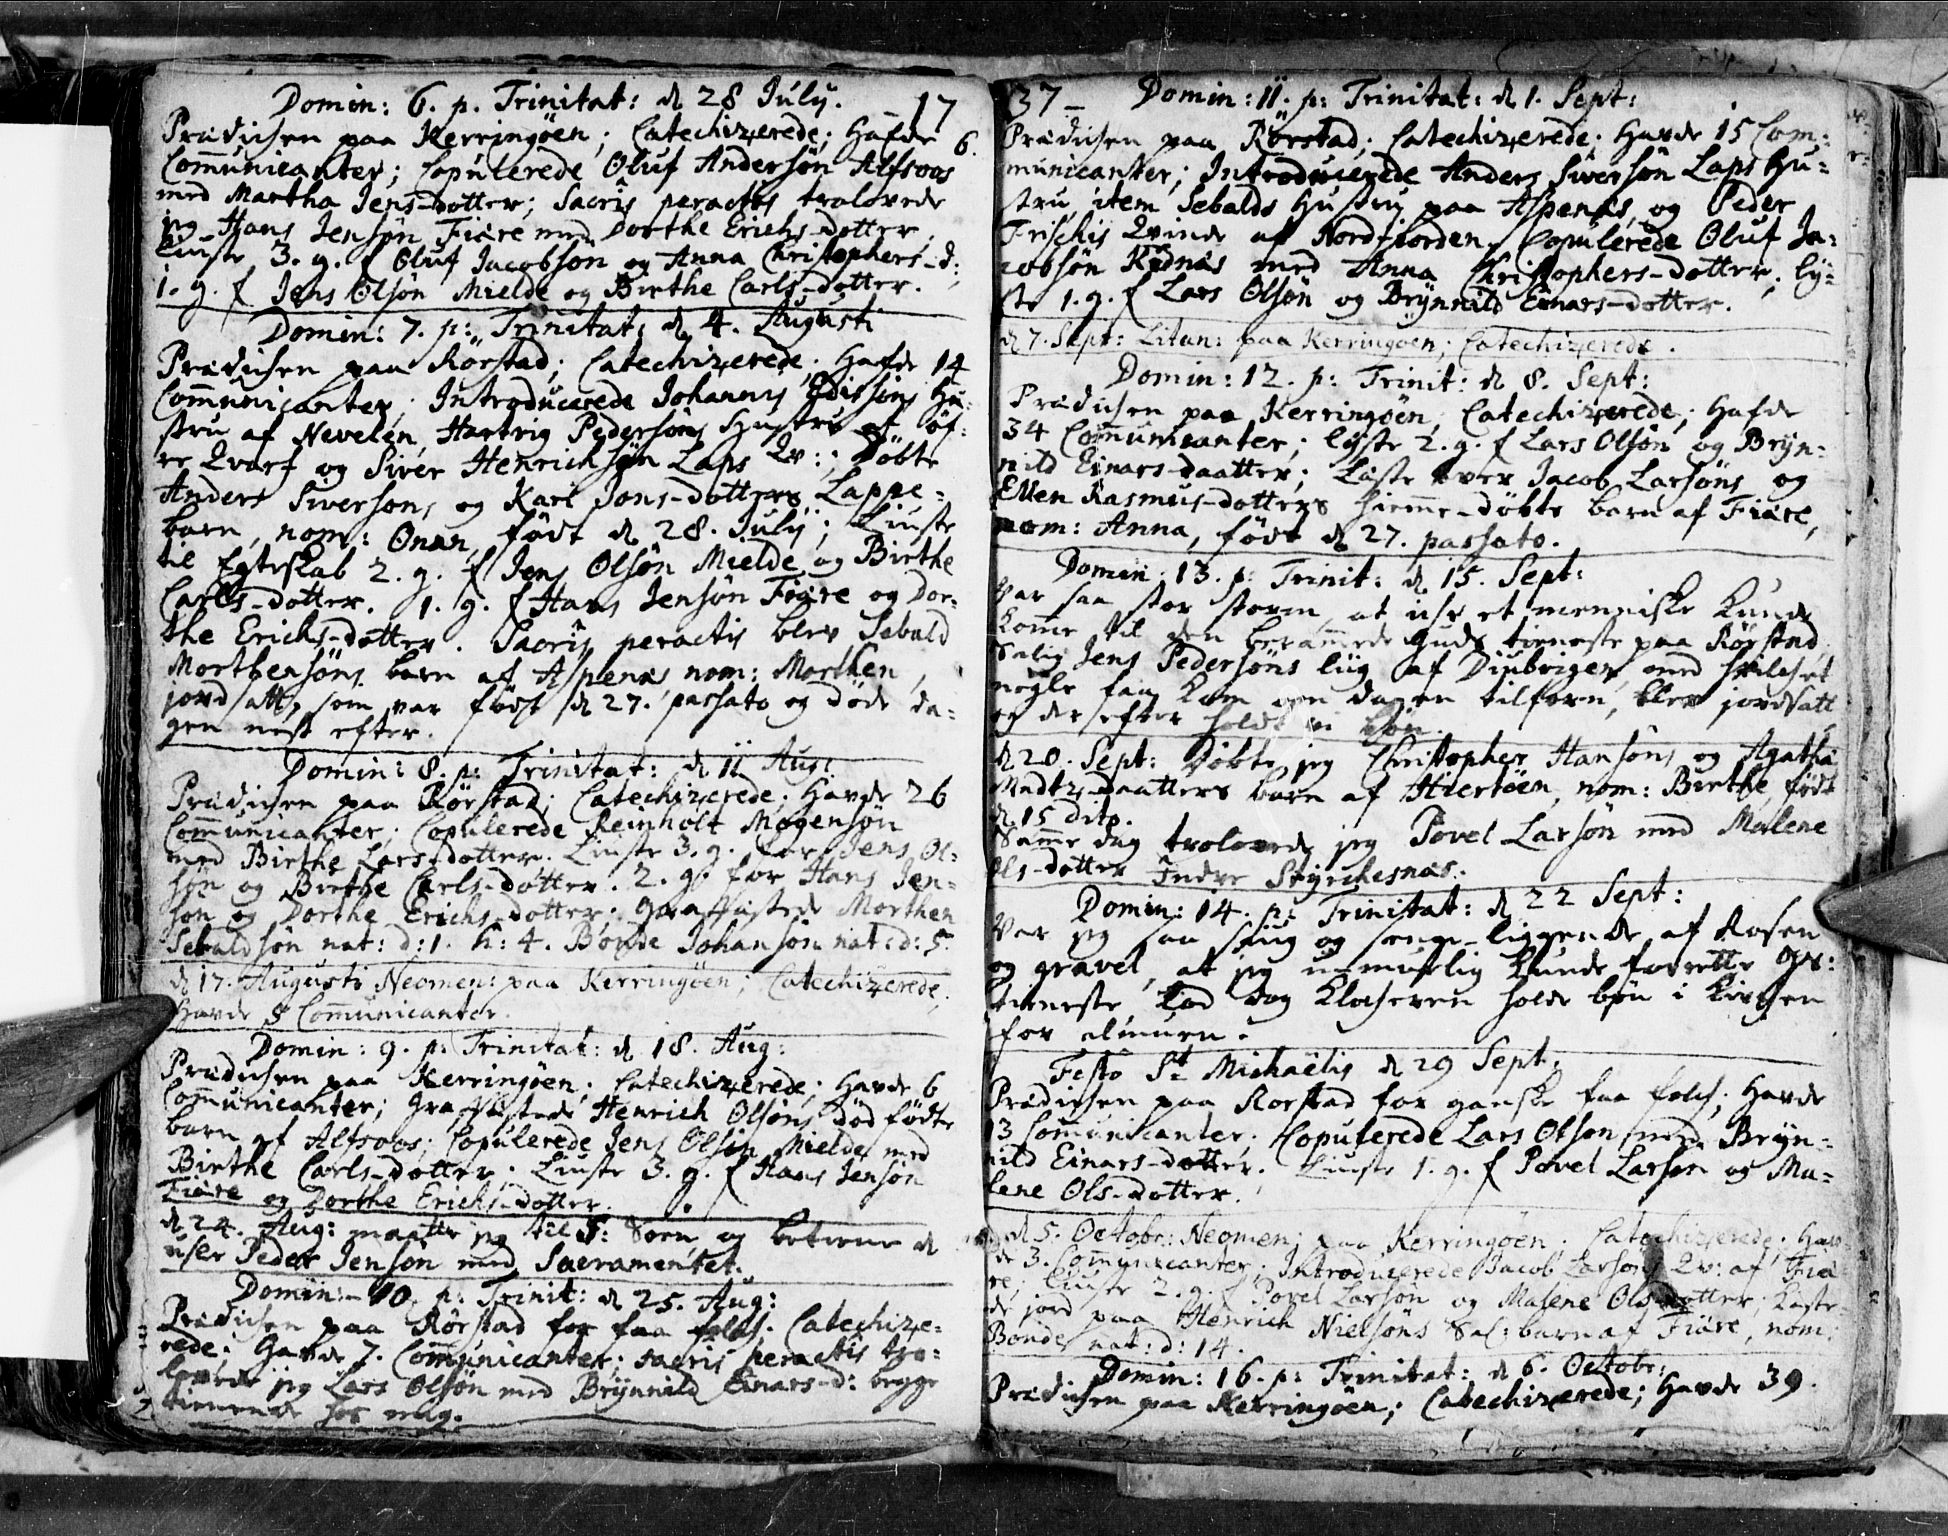 Domin: 6. p. Trinitat: d 28 July. 17
Prædichen paa Kerringöen; Catechizerede; Hafde 6.
Communicanter; Copulerede Oluf Andersön Alfsoos
med Martha Jens-dotter; Sacris peractis trolovede
jeg Hans Jensön Fiære med Dorthe Erichs-dotter.
Liuste 3. g. f Oluf Jacobsön og Anna Christophers-d:;
1. g. f Jens Olsön Mielde og Birthe Carls-dotter.
Domin: 7. p: Trinitat: d 4. Augusti
Prædichen paa Rörstad; Catechizerede; Hafde 14
Communicanter; Introducerede Johannis Hu-
stru af Nevelen, Hartvig Pedersöns Hustru afÖf-
re Qvarf og Siver Henrichsön Laps Qv:; Döbte
Anders Siversöns og Kari Jons-dotters Lappe-
barn, nom: Onan, födt d 28. July; Liuste
til Egteskab 2. g. f Jens Olsön Mielde og Birthe
Carls-dotter. 1. g. f Hans Jensön Fiære og Dor-
the Erichs-dotter. Sacris peractis blev Sebald
Morthensöns barn af Aspenæs nom: Morthen,
jordsatt, som var födt d 27. passato og döde da-
gen nest efter.
Domin: 8. p: Trinitat: d 11 Aug:
Prædichen paa Rörstad; Catechizerede; Havde 26
Communicanter; Copulerede Reinholt Mogensön
med Birthe Lars-dotter. Liuste 3. g. for Jens Ol-
sön og Birthe Carls-dotter. 2. g. for Hans Jen-
sön og Dorthe Erichs-dotter; Graffæstede Morthen
Sebaldsön nat: d: 1. h: 4. Bonde Johansön nat: d: 5.
d 17. Augusti Neomen: paa Kerringöen; Catechizerede;
Havde 8 Communicanter.
Domin: 9. p: Trinitat: d 18. Aug:
Prædichen paa Kerringöen; Catechizerede; Havde 6
Communicanter; Graffæstede Henrich Olsöns död födte
barn af Alfsoos; Copulerede Jens Olsön Mielde med
Birthe Carls-dotter; Liuste 3. g. f Hans Jensön
Fiære og Dorthe Erichs-dotter.
d 24. Aug: maatte jeg til S: Soen og betiene d
usle Peder Jensön med Sacramentet.
Domin: 10. p: Trinit: d 25. Aug:
Prædichen paa Rörstad for faa folch. Catechize-
rede; Havde 7. Communicanter; sacris peractis tro-
lovede jeg Lars Olsön med Brÿnnild Einars-d: begge
tienende hos mig.
37- Domin: 11. p: Trinitat: d 1. Sept:
Prædichen paa Rörstad; Catechizerede; Havde 15 Com-
municanter; Introducerede Anders Siversön Laps Hu-
stru, item Sebalds Hustru paa Aspenæs, og Peder
Frischis Qvinde af Nordfiorden. Copulerede Oluf Ja-
cobsön Kodnæs med Anna Christophers-dotter; ly-
ste 1. g. f Lars Olsön og Brÿnnild Einars-dotter.
d 7. Sept: Litan: paa Kerringöen; Catechizerede.
Domin: 12. p: Trinit: d 8. Sept:
Prædichen paa Kerringöen; Catechizerede; Hafde
34 Communicanter; lyste 2. g. f Lars Olsön og Brÿn-
nild Einars-daatter; Læste over Jacob Larsöns og
Ellen Rasmus-dotters hiemme-döbte barn af Fiære,
nom: Anna, födt d 27. passato.
Domin: 13. p: Trinit: d 15. Sept:
Var saa stor storm, at iche et menniske kunde
komme til den berammede Guds tieneste paa Rörstad.
Salig Jens Pedersöns liig af Diubvigen, med hvilchet
nogle faa kom ... dagen tilforn, blev jordsatt
og derefter holdt ... bön.
d 20. Sept: döbte jeg Christopher Hansöns og Agatha
Madtz-daatters barn af Hiertöen, nom: Birthe, födt
d 15 dito.
Samme dag trolovede jeg Povel Larsön med Malene
Ols-dotter Indre Styrchesnæs.
Domin: 14. p: Trinitat: d 22 Sept:
Var jeg saa siug og senge-liggende af Rosen
og gravel, at jeg u-muelig kunde forrette Gs:
tieneste Lod dog klocheren holde bön i kirchen
for almuen.
Festo St Michaëlis d 29 Sept:
Prædichen paa Rorstad for ganske faa folch; Havde
13 Communicanter; Copulerede Lars Olsön med Brÿn-
nild Einars-dotter; Liuste 1. g. f Povel Larsön og Ma-
lene Ols-dotter.
d 5. Octobr: Neomen: paa Kerringöen. Catechizerede. Hav-
de 3. Communicanter; Introducerede Jacob Larsöns Qv: af Fiæ-
re; Liuste 2. g. f Povel Larsön og Malene Ols-dotter; kaste-
de jord paa Henrich Nielsöns Sal: barn af Fiære, nom:
Bonde nat: d: 14.
Domin: 16. p: Trinitat: d 6. Octobr:
Prædichen paa Kerringöen; Catechizerede; Havde 39.